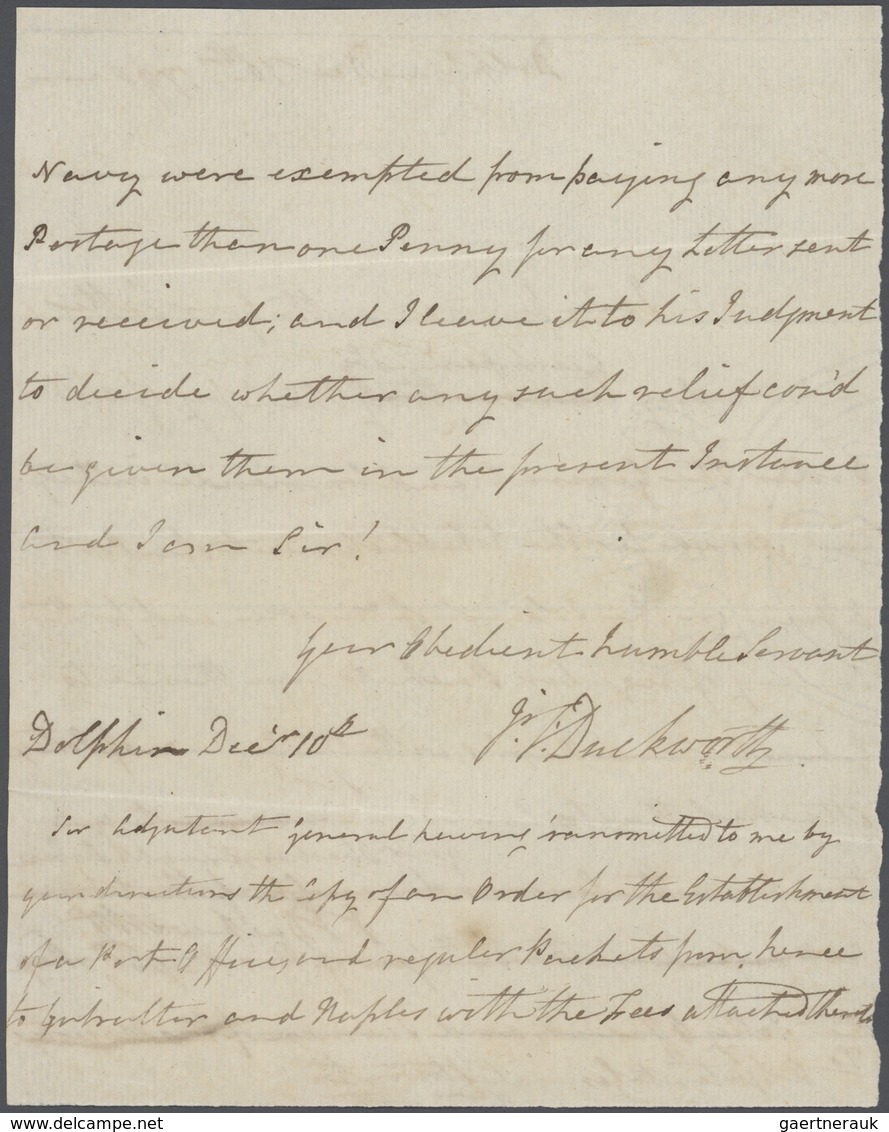 Navy were exempted from paying any more
Postage than one Penny for any Letter sent
or received; and I leave it to his Judgment
to decide whether any such relief cou'd
be given them in the present Instance
and I am Sir!
Your Obedient humble Servant
Dolphin Decr 10th J. T. Duckworth
Sir Adjutant General having transmitted to me by
your directions the Copy of an Order for the Establishment
of a Post Office, and regular Packets from hence
to Gibralter and Naples with the Fees attached thereto
gaertnerauk